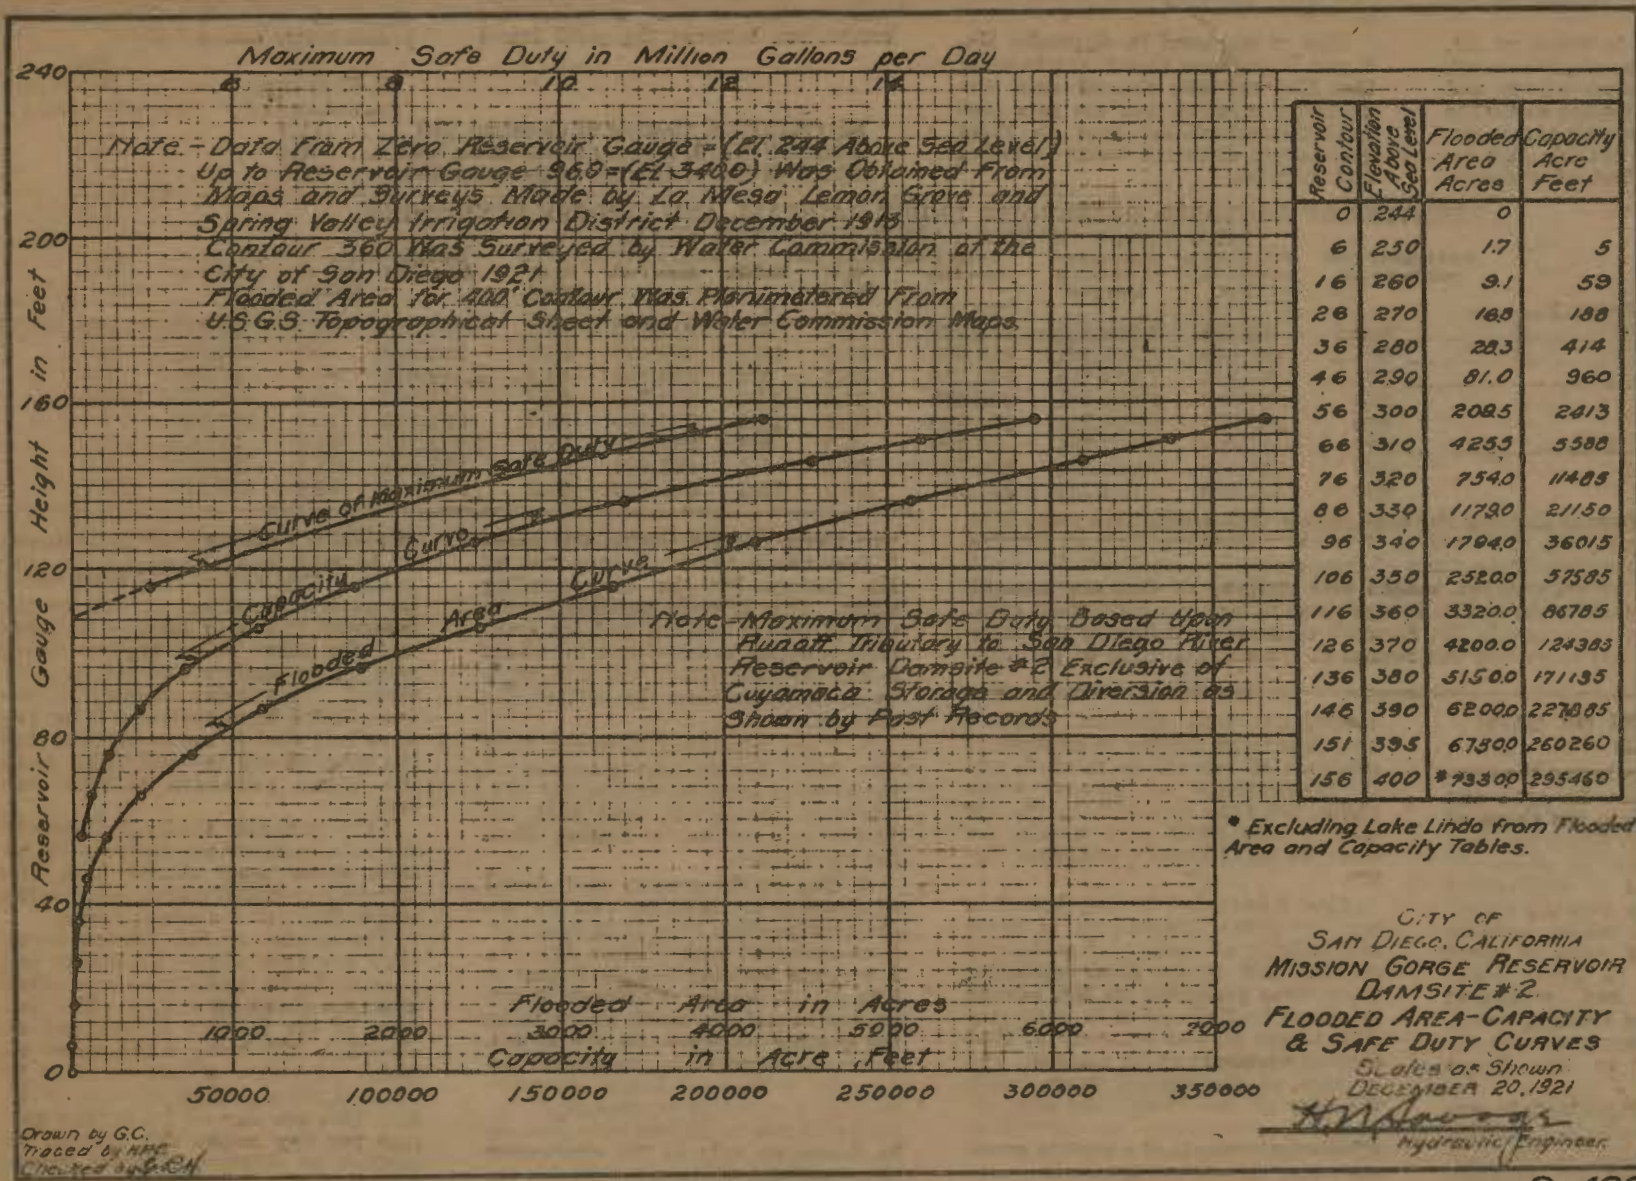 Maximum Safe Duty in Million Gallons per Day
240
6 8 10 12 14
Note - Data From Zero Reservoir Gauge = (El. 244 Above Sea Level)
Up to Reservoir Gauge 96.0 = (El. 340.0) Was Obtained From
Maps and Surveys Made by La Mesa Lemon Grove and
Spring Valley Irrigation District December 1913
Contour 360 Was Surveyed by Water Commission of the
City of San Diego 1921
Flooded Area for 400' Contour Was Planimetered From
U.S.G.S. Topographical Sheet and Water Commission Maps.
200
160
120
80
40
0
Reservoir Gauge Height in Feet
Curve of Maximum Safe Duty
Capacity Curve
Flooded Area Curve
Note - Maximum Safe Duty Based Upon
Runoff Tributary to San Diego River
Reservoir Damsite #2 Exclusive of
Cuyamaca Storage and Diversion as
Shown by Past Records
Flooded Area in Acres
1000 2000 3000 4000 5000 6000 7000
Capacity in Acre Feet
50000 100000 150000 200000 250000 300000 350000
Drawn by G.C.
Traced by
Checked by
Reservoir Contour Elevation Above Sea Level Flooded Area Acres Capacity Acre Feet
0 244 0
6 250 1.7 5
16 260 9.1 59
26 270 16.8 188
36 280 28.3 414
46 290 81.0 960
56 300 209.5 2413
66 310 425.5 5588
76 320 754.0 11485
86 330 1179.0 21150
96 340 1794.0 36015
106 350 2520.0 57585
116 360 3320.0 86785
126 370 4200.0 124385
136 380 5150.0 171135
146 390 6200.0 227885
151 395 6750.0 260260
156 400 *7330.0 295460
* Excluding Lake Lindo from Flooded
Area and Capacity Tables.
CITY OF
SAN DIEGO, CALIFORNIA
MISSION GORGE RESERVOIR
DAMSITE #2
FLOODED AREA-CAPACITY
& SAFE DUTY CURVES
Scales as Shown
DECEMBER 20, 1921
H.N. Savage
Hydraulic Engineer.